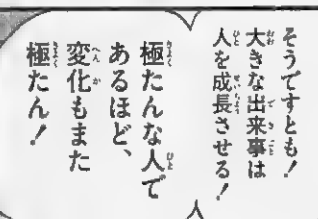 そうですとも!
大きな出来事は
人を成長させる!
極たんな人で
あるほど、
変化もまた
極たん!